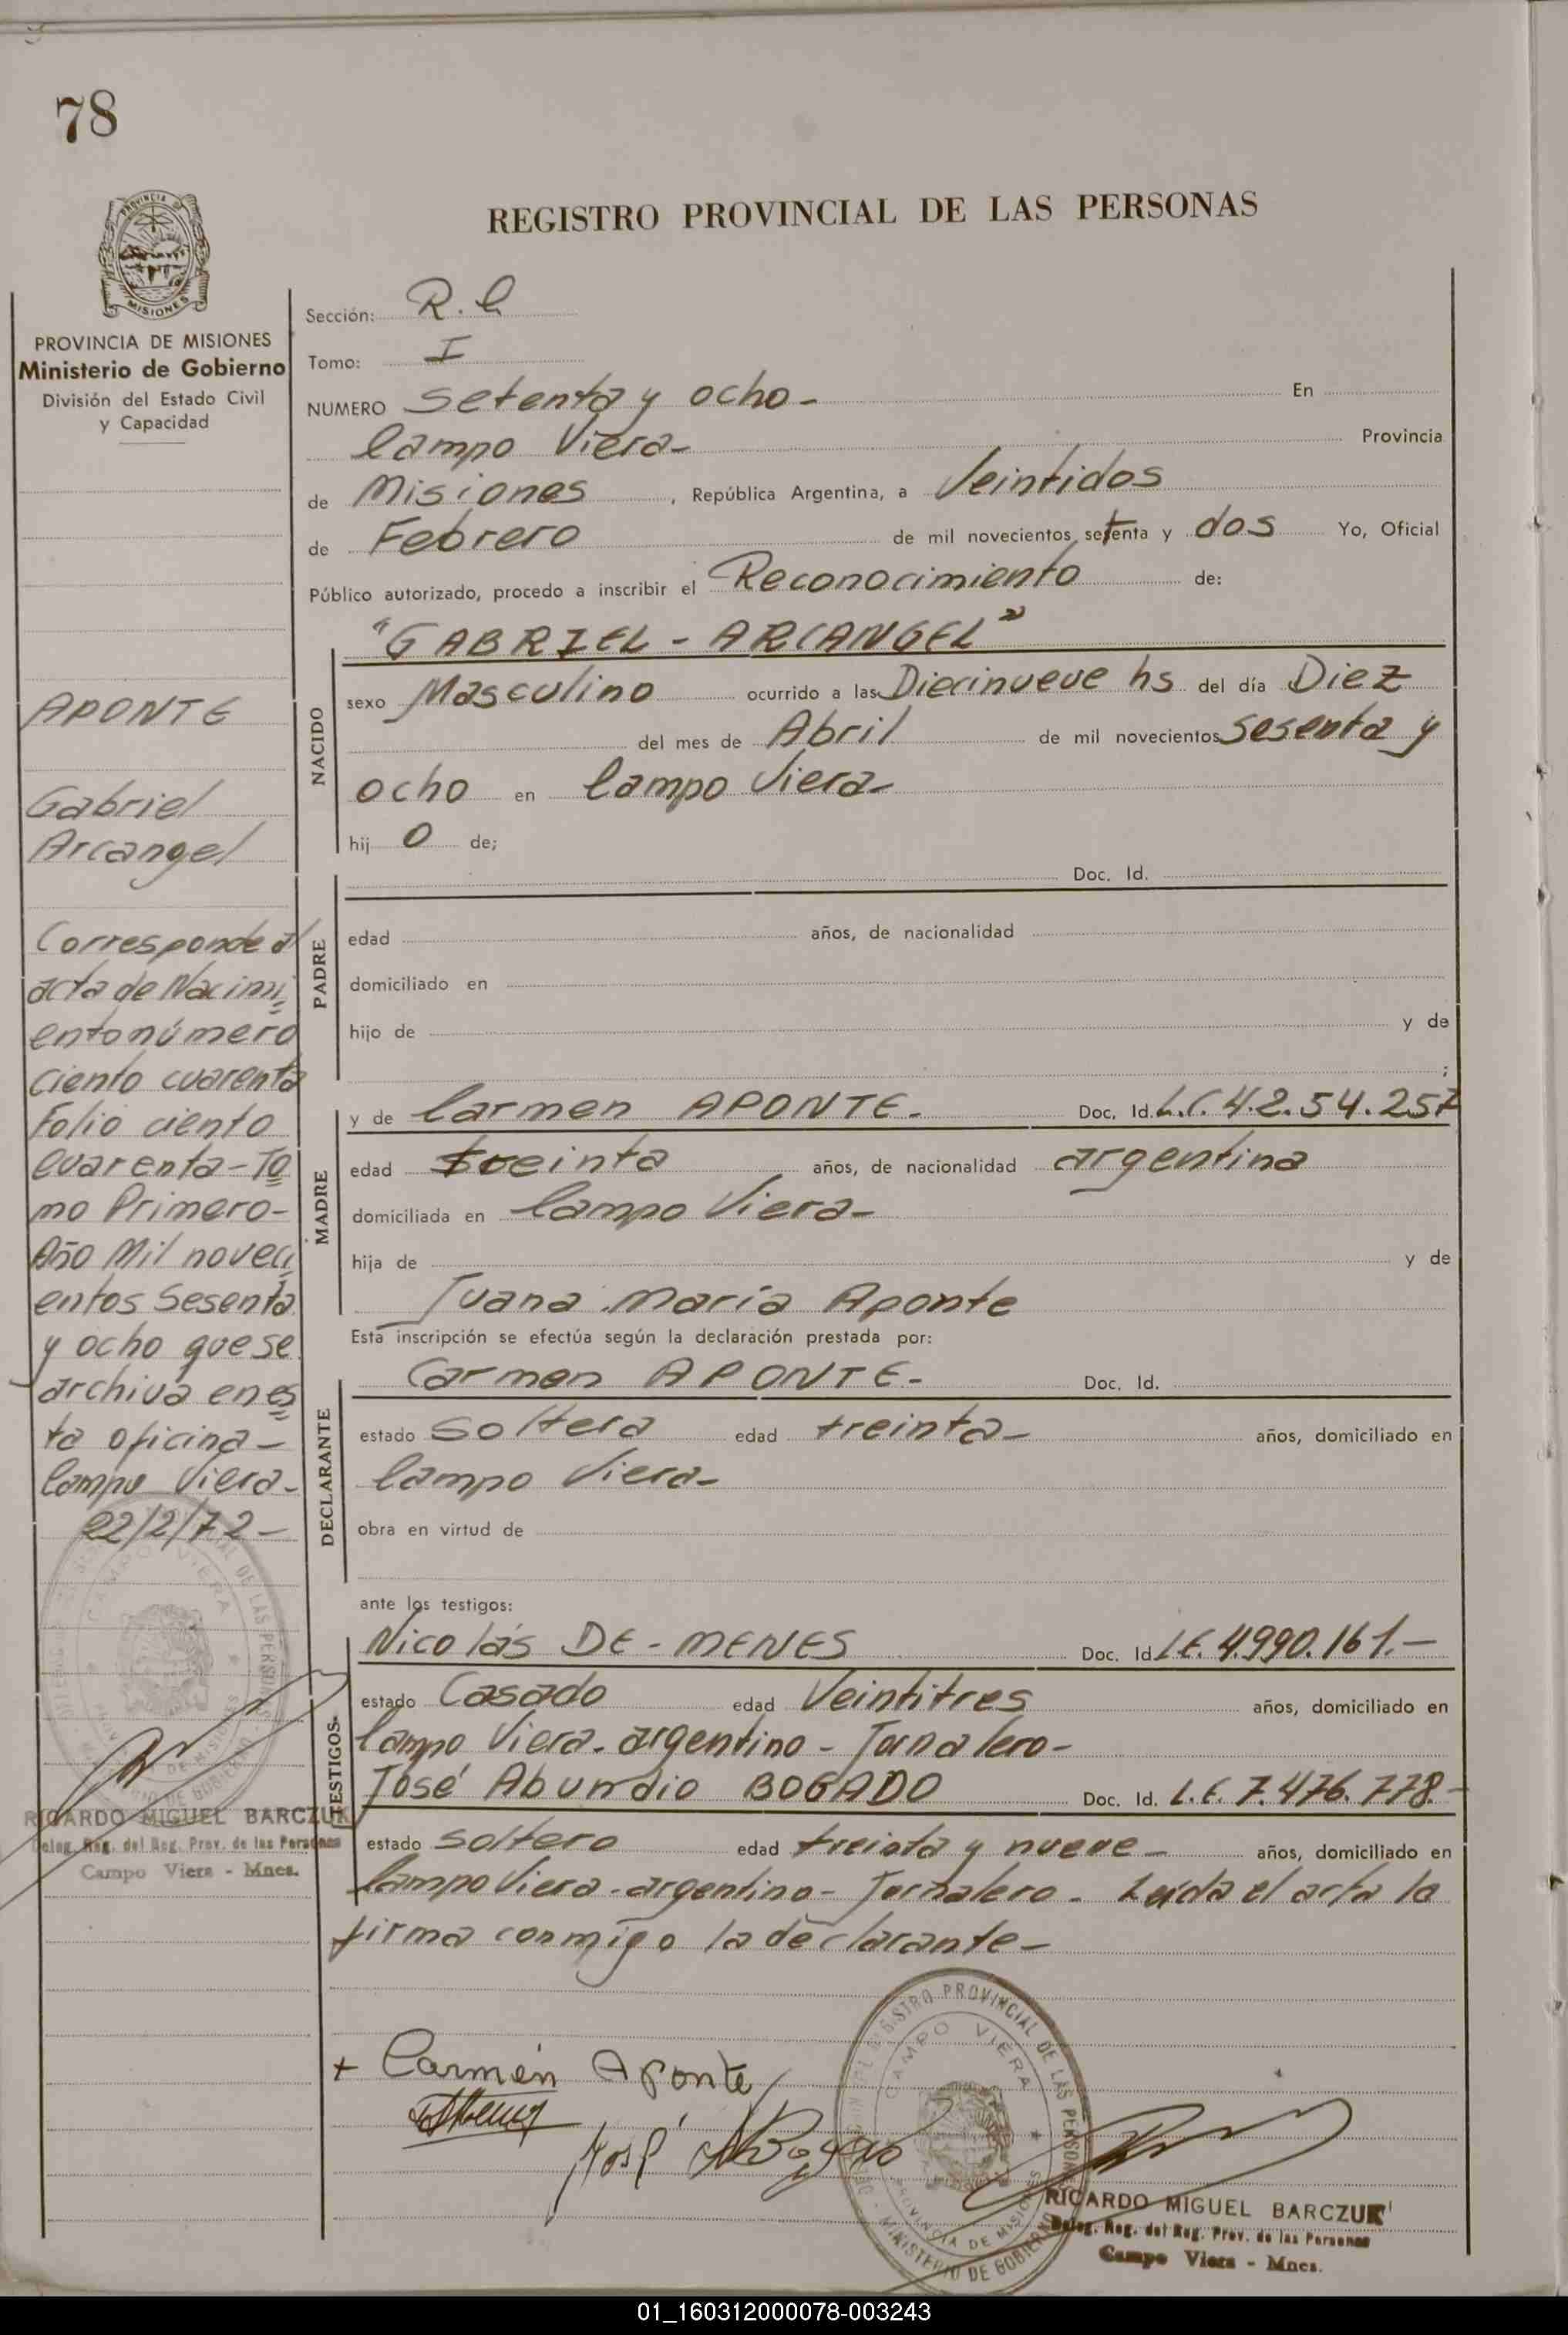 78
PROVINCIA DE MISIONES
Ministerio de Gobierno
División del Estado Civil
y Capacidad
APONTE
Gabriel
Arcangel
Corresponde al
acta de Nacimi
ento número
ciento cuarenta
Folio ciento
cuarenta - To
mo Primero -
Año Mil noveci
entos Sesenta
y ocho que se
archiva en es
ta oficina -
Campo Viera -
22/2/72 -
RICARDO MIGUEL BARCZUK
Deleg. Reg. del Reg. Prov. de las Personas
Campo Viera - Mnes.
REGISTRO PROVINCIAL DE LAS PERSONAS
Sección: R. C
Tomo: I
NUMERO setenta y ocho - En
Campo Viera - Provincia
de Misiones, República Argentina, a Veintidos
de Febrero de mil novecientos setenta y dos Yo, Oficial
Público autorizado, procedo a inscribir el Reconocimiento de:
"GABRIEL - ARCANGEL"
NACIDO
sexo Masculino ocurrido a las Diecinueve hs del día Diez
del mes de Abril de mil novecientos Sesenta y
ocho en Campo Viera -
hij o de;
PADRE
Doc. Id.
edad años, de nacionalidad
domiciliado en
hijo de y de
;
MADRE
y de Carmen APONTE. Doc. Id. L.C. 4.2.54.257
edad treinta años, de nacionalidad argentina
domiciliada en Campo Viera -
hija de y de
Juana María Aponte
Esta inscripción se efectúa según la declaración prestada por:
DECLARANTE
Carmen APONTE - Doc. Id.
estado soltera edad treinta - años, domiciliado en
Campo Viera -
obra en virtud de
ante los testigos:
TESTIGOS
Nicolás DE - MENES Doc. Id L.E. 4.990.161. -
estado Casado edad Veintitres años, domiciliado en
Campo Viera - argentino - Jornalero -
José Abundio BOGADO Doc. Id. L.E. 7.476.778. -
estado soltero edad treinta y nueve - años, domiciliado en
Campo Viera - argentino - Jornalero - Leída el acta la
firma conmigo la declarante -
+ Carmen Aponte
José A Bogado
REGISTRO PROVINCIAL DE LAS PERSONAS
CAMPO VIERA
PROVINCIA DE MISIONES
MINISTERIO DE GOBIERNO
RICARDO MIGUEL BARCZUK
Deleg. Reg. del Reg. Prov. de las Personas
Campo Viera - Mnes.
01_160312000078-003243